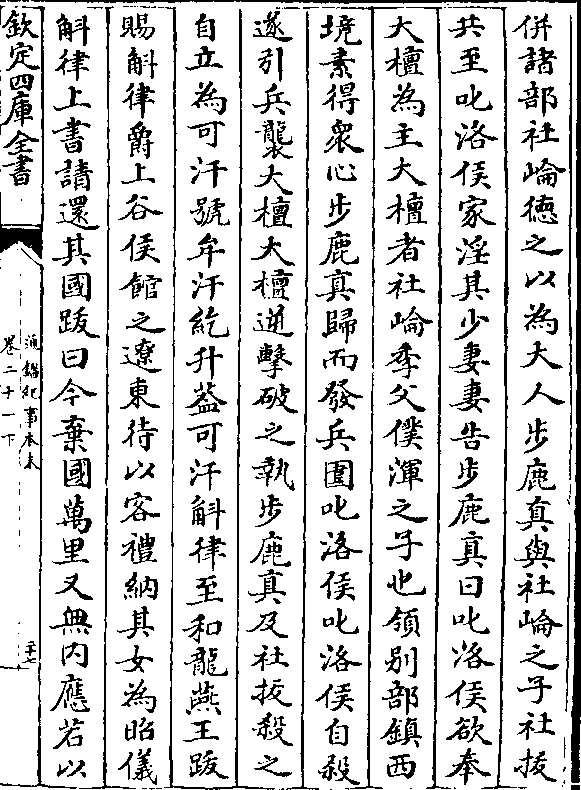 併諸部社崘德之以為大人步鹿真與社崘之子社拔
共至叱洛侯家淫其少妻妻告步鹿真曰叱洛侯欲奉
大檀為主大檀者社崘季父僕渾之子也領别部鎮西
境素得衆心步鹿真歸而發兵圍叱洛侯叱洛侯自殺
遂引兵襲大檀大檀逆擊破之執步鹿真及社拔殺之
自立為可汗號牟汗紇升葢可汗斛律至和龍燕王跋
賜斛律爵上谷侯館之遼東待以客禮納其女為昭儀
斛律上書請還其國跋曰今棄國萬里又無内應若以
欽定四庫全書
通鑑紀事本末
卷二十一下
二十七